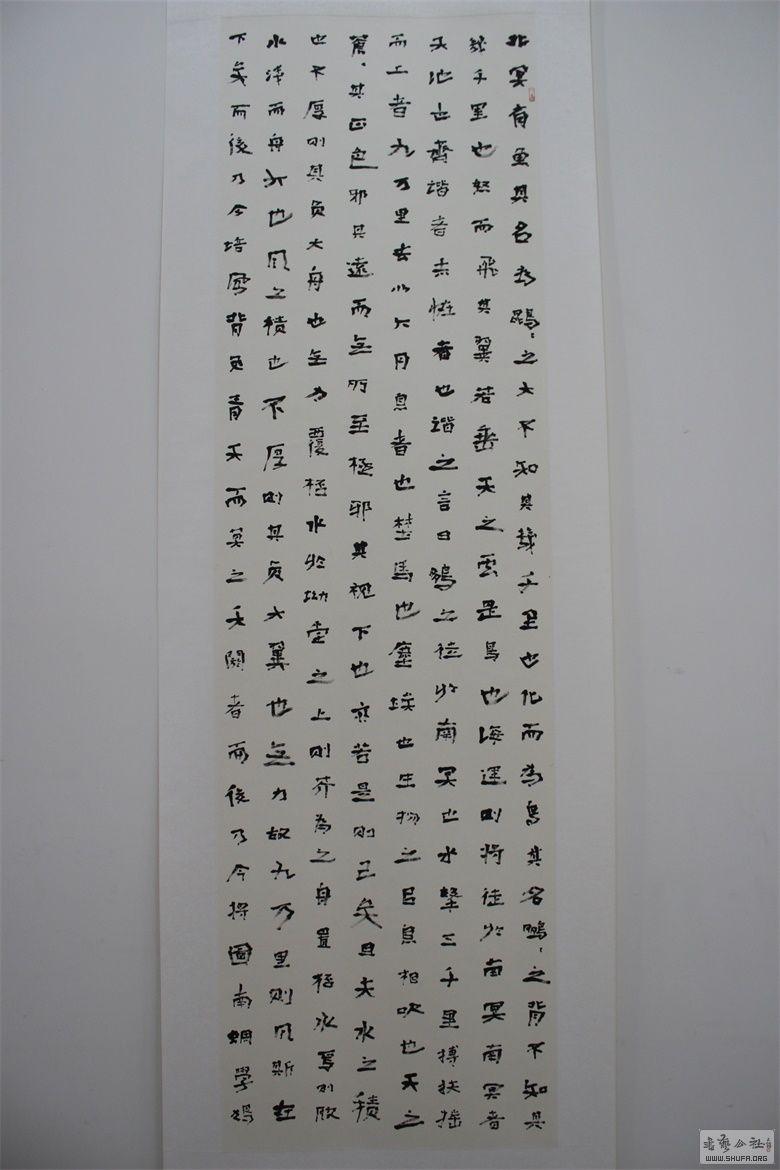 北冥有魚其名為鯤〻之大不知其幾千里也化而為鳥其名鵬〻之背不知其
幾千里也怒而飛其翼若垂天之雲是鳥也海運則將徙於南冥南冥者
天池也齊諧者志怪者也諧之言曰鵬之徙於南冥也水擊三千里搏扶搖
而上者九万里去以六月息者也埜馬也塵埃也生物之㠯息相吹也天之
蒼〻其正色邪其遠而無所至極邪其視下也亦若是則已矣且夫水之積
也不厚則其負大舟也無力覆杯水於坳堂之上則芥為之舟置杯水焉則膠
水淺而舟大也風之積也不厚則其負大翼也無力故九万里則風斯在
下矣而後乃今培風背負青天而莫之夭閼者而後乃今將圖南蜩學鳩
書藝公社
WWW.SHUFA.ORG